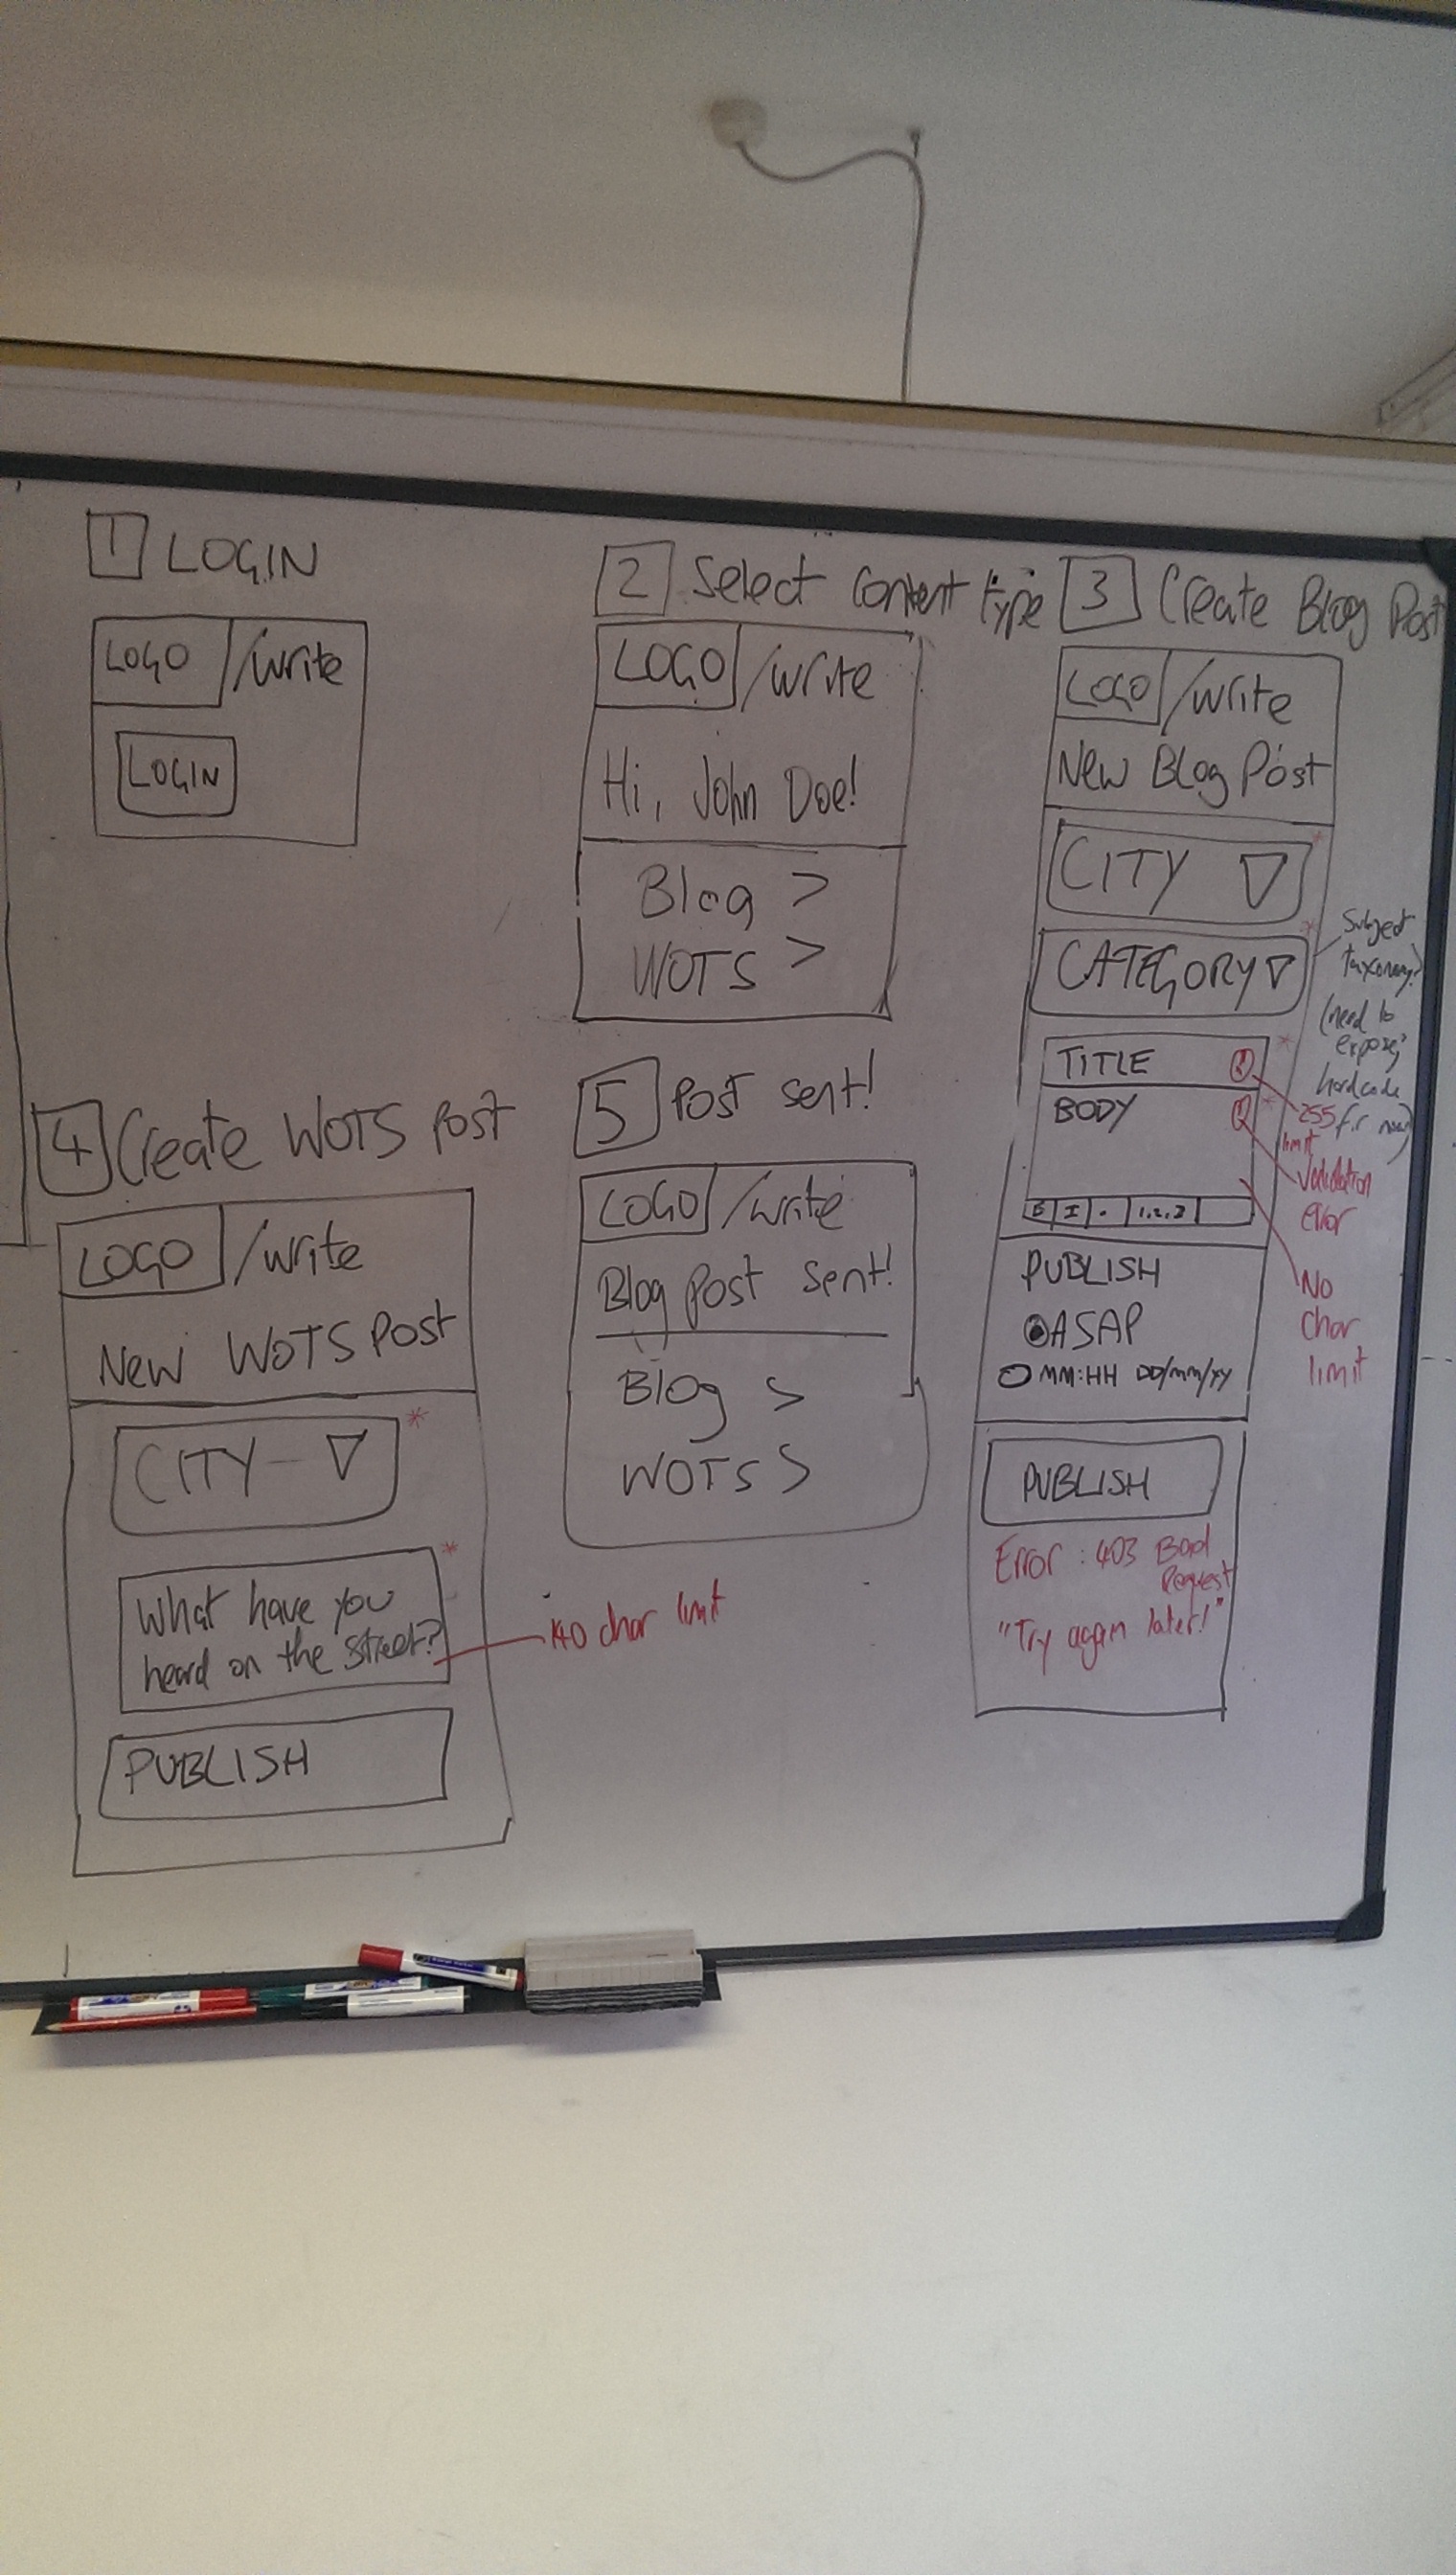 1 LOGIN
LOGO /write
LOGIN
2 Select content type
LOGO /write
Hi, John Doe!
Blog >
WOTS >
3 Create Blog Post
LOGO /write
New Blog Post
CITY ▽ *
CATEGORY ▽ *
Subject
taxonomy?
(need to
expose,
hardcode
for now)
TITLE ! *
255
limit
BODY ! *
validation
error
B I . 1.2.3
No
char
limit
PUBLISH
ASAP
MM:HH DD/mm/YY
PUBLISH
Error : 403 Bad
Request
"Try again later!"
4 Create WOTS Post
LOGO /write
New WOTS Post
CITY ▽ *
What have you *
heard on the street?
140 char limit
PUBLISH
5 Post sent!
LOGO /write
Blog Post sent!
Blog >
WOTS >